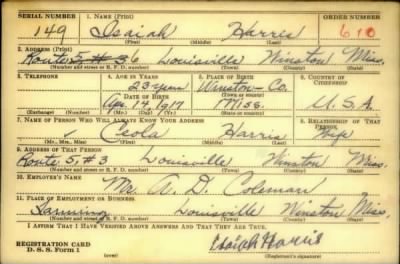 SERIAL NUMBER 1. NAME (Print) ORDER NUMBER
149 Isaiah Harris 610
(First) (Middle) (Last)
2. ADDRESS (Print)
Route 5, # 36 Louisville Winston Miss.
(Number and street or R. F. D. number) (Town) (County) (State)
3. TELEPHONE 4. AGE IN YEARS 5. PLACE OF BIRTH 6. COUNTRY OF CITIZENSHIP
23 years Winston Co.
DATE OF BIRTH
Apr. 14, 1917 Miss. U.S.A.
(Exchange) (Number) (Mo.) (Day) (Yr.) (State or country)
7. NAME OF PERSON WHO WILL ALWAYS KNOW YOUR ADDRESS 8. RELATIONSHIP OF THAT PERSON
Ceola Harris Wife
(Mr., Mrs., Miss) (First) (Middle) (Last)
9. ADDRESS OF THAT PERSON
Route 5, # 3 Louisville Winston Miss.
(Number and street or R. F. D. number) (Town) (County) (State)
10. EMPLOYER'S NAME
Mr. A. D. Coleman
11. PLACE OF EMPLOYMENT OR BUSINESS
Louisville Winston Miss.
(Number and street or R. F. D. number) (Town) (County) (State)
I AFFIRM THAT I HAVE VERIFIED ABOVE ANSWERS AND THAT THEY ARE TRUE.
REGISTRATION CARD Isaiah Harris
D. S. S. Form 1 (over) (Registrant's signature)